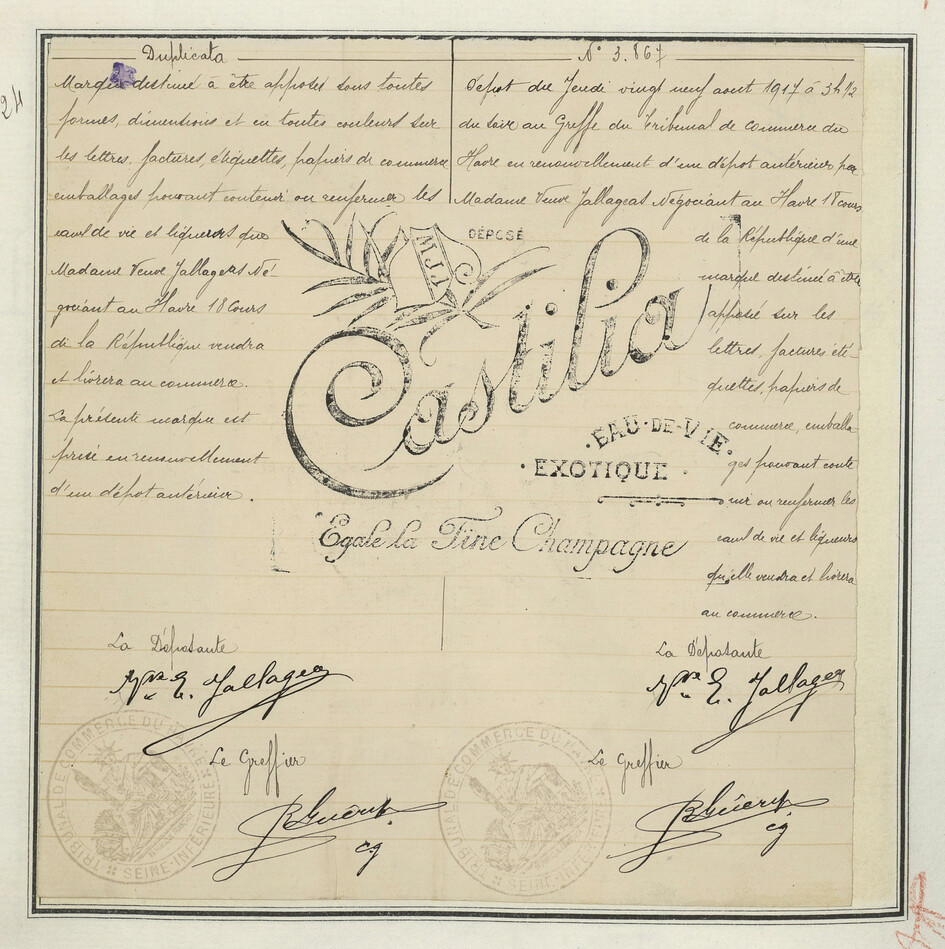 Duplicata
Marque destiné à être apposée sous toutes
formes, dimensions et en toutes couleurs sur
les lettres, factures, étiquettes, papiers de commerce
emballages pouvant contenir ou renfermer les
eaux de vie et liqueurs que
Madame Veuve Jallageas Né-
gociant au Havre 18 Cours
de la République vendra
et livrera au commerce.
La présente marque est
prise en renouvellement
d'un dépôt antérieur.
N° 3.867
Dépot du Jeudi vingt neuf aout 1917 à 3h 1/2
du soir au Greffe du Tribunal de Commerce du
Havre en renouvellement d'un dépôt antérieur par
Madame Veuve Jallageas Négociant au Havre 18 cours
de la République d'une
marque destinée à être
apposée sur les
lettres, factures, éti-
quettes, papiers de
commerce, emballa-
ges pouvant conte
nir ou renfermer les
eaux de vie et liqueurs
qu'elle vendra et livrera
au commerce.
DÉPOSÉ
Castilia
EAU-DE-VIE
EXOTIQUE
Egale la Fine Champagne
La Déposante
Vve E. Jallageas
Le Greffier
La Déposante
Vve E. Jallageas
Le Greffier
TRIBUNAL DE COMMERCE DU HAVRE
SEINE-INFÉRIEURE
TRIBUNAL DE COMMERCE DU HAVRE
SEINE-INFÉRIEURE
24